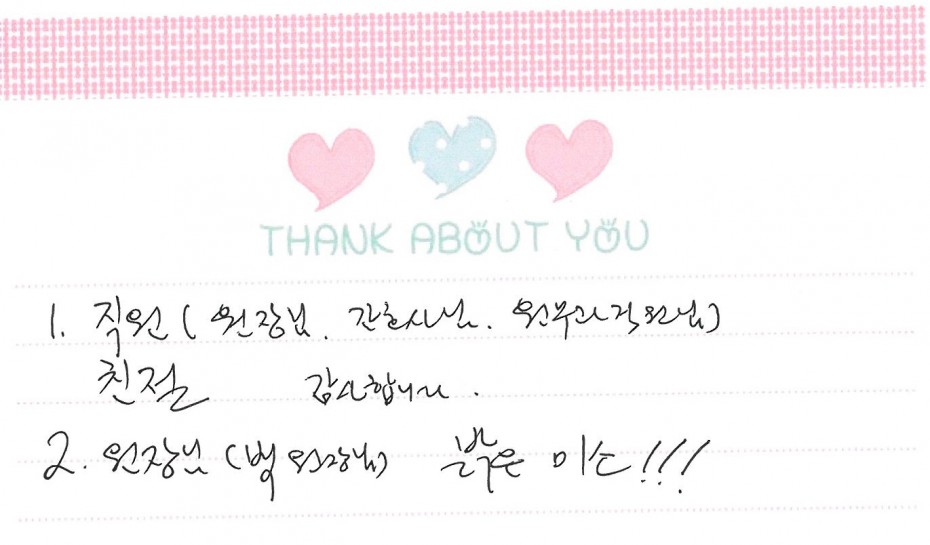 THANK ABOUT YOU
1. 직원 ( 원장님. 간호사님. 원무과직원님)
친절 감사합니다.
2. 원장님 ( 원장님) 밝은 미소!!!